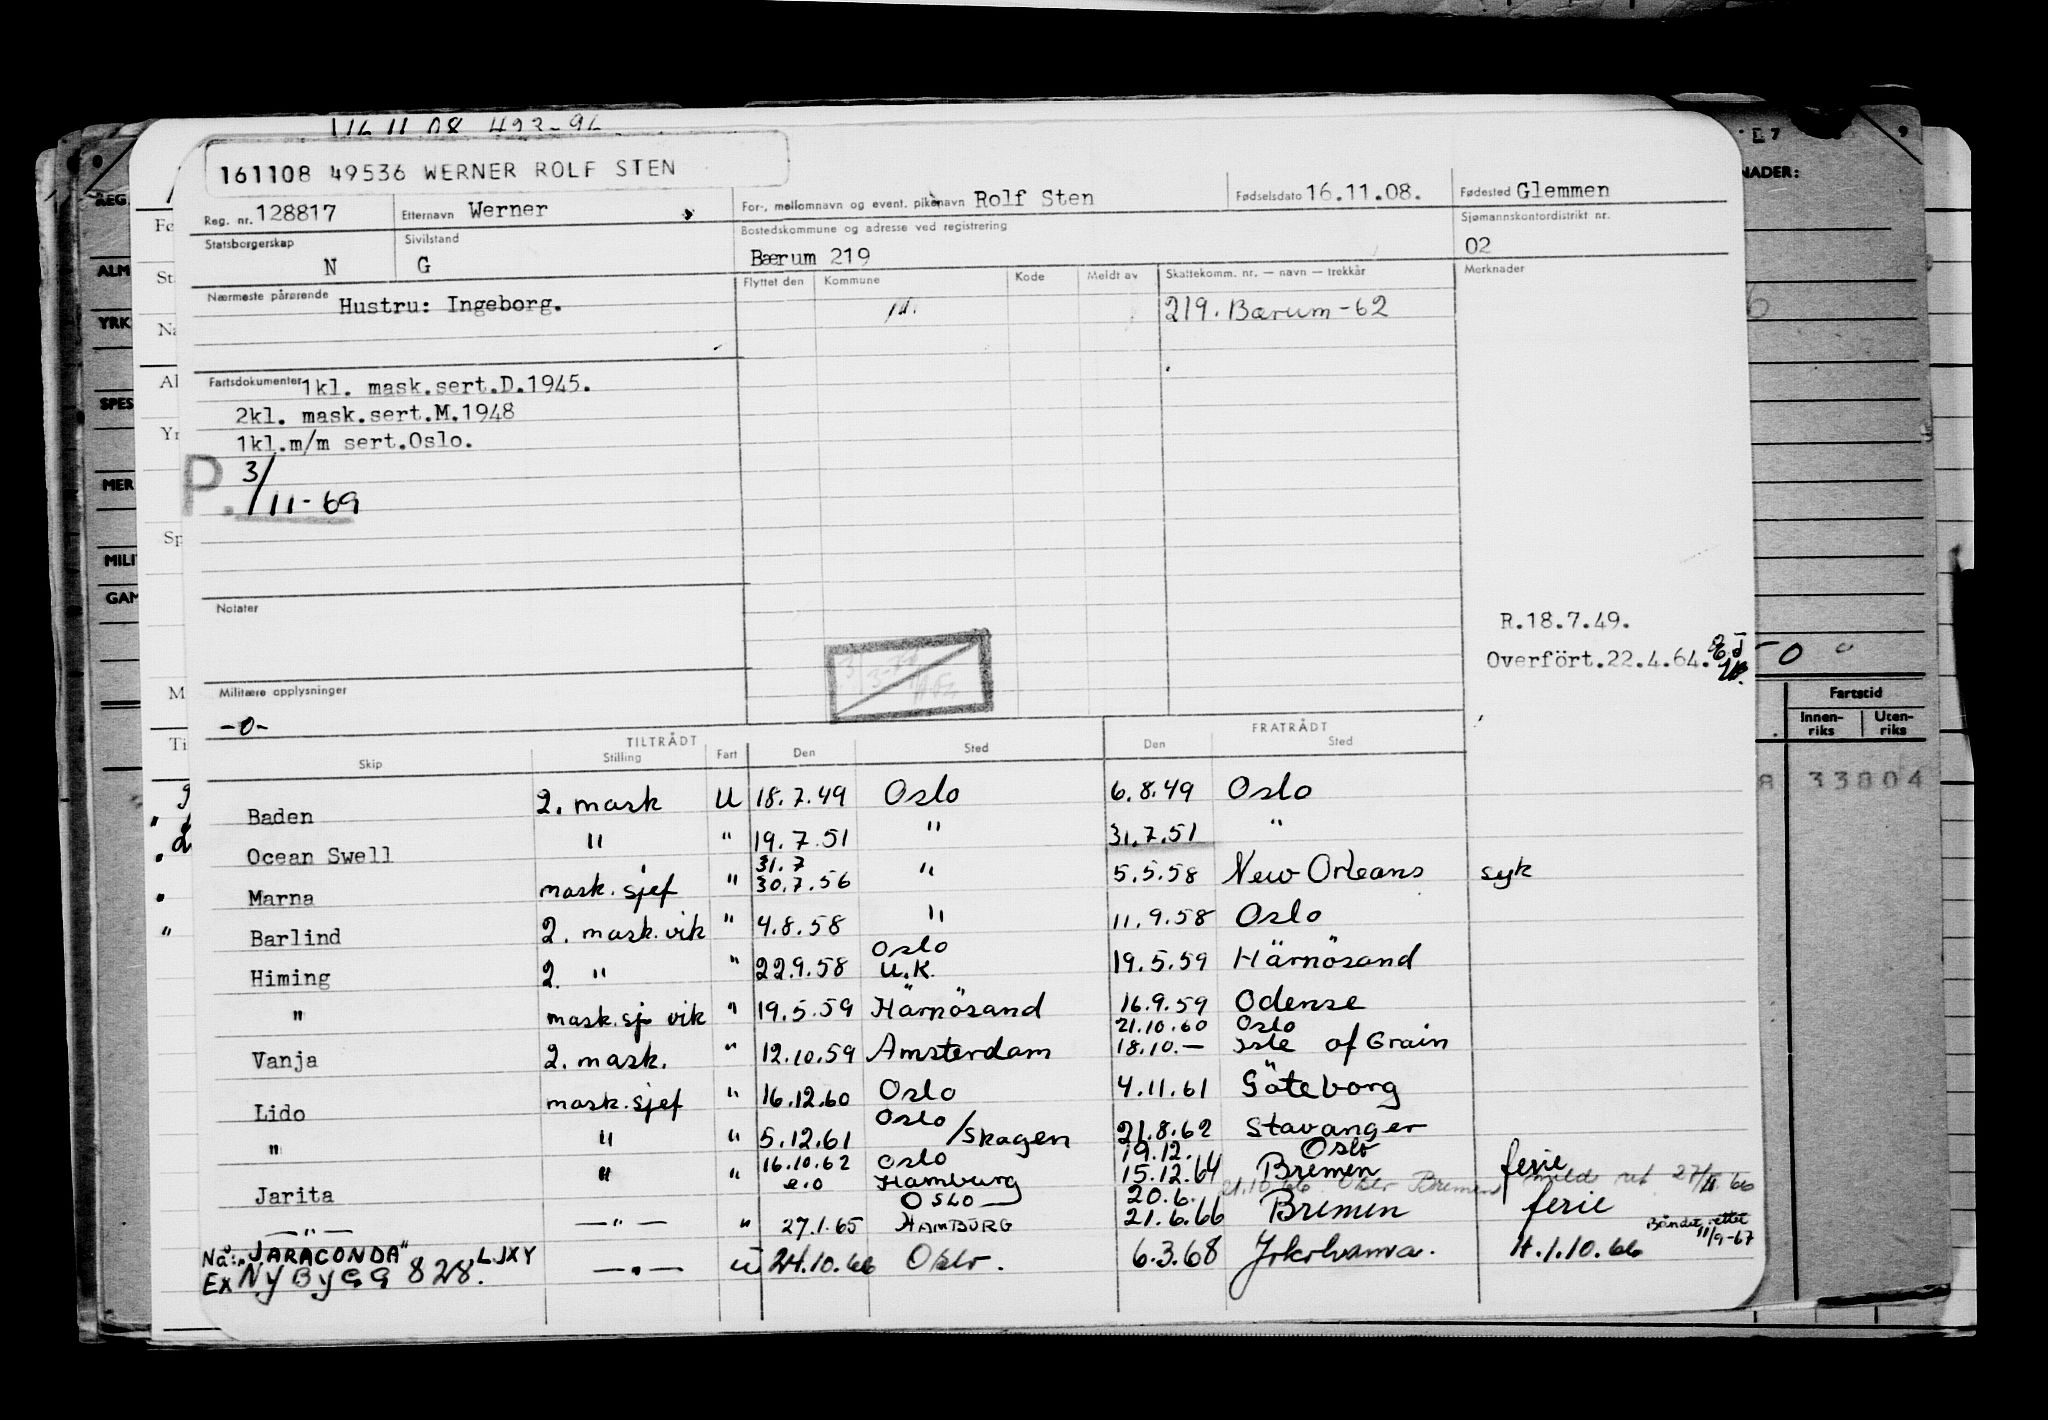 161108 49536 WERNER ROLF STEN
Reg. nr. 128817 Etternavn Werner For-, mellomnavn og event. pikenavn Rolf Sten Fødselsdato 16.11.08. Fødested Glemmen
Statsborgerskap N Sivilstand G Bostedskommune og adresse ved registrering Bærum 219 Sjømannskontordistrikt nr. 02
Nærmeste pårørende Hustru: Ingeborg. Flyttet den Kommune Kode Meldt av Skattekomm. nr. — navn — trekkår Merknader
219. Bærum-62
Fartsdokumenter 1kl. mask.sert.D.1945.
2kl. mask.sert.M.1948
1kl.m/m sert.Oslo.
P. 3/11-69
Notater
R.18.7.49.
Overført.22.4.64.
Militære opplysninger
-0-
TILTRÅDT FRATRÅDT
Skip Stilling Fart Den Sted Den Sted
Baden 2. mask U 18.7.49 Oslo 6.8.49 Oslo
Ocean Swell " " 19.7.51 " 31.7.51 "
31.7
Marna mask.sjef " 30.7.56 " 5.5.58 New Orleans syk
Barlind 2. mask.vik " 4.8.58 " 11.9.58 Oslo
Oslo
Himing 2. " " 22.9.58 U.K. 19.5.59 Härnösand
" mask.sj vik " 19.5.59 Härnösand 16.9.59 Odense
21.10.60 Oslo
Vanja 2. mask. " 12.10.59 Amsterdam 18.10.— Isle of Grain
Lido mask.sjef " 16.12.60 Oslo 4.11.61 Göteborg
" " " 5.12.61 Oslo/Skagen 21.8.62 Stavanger
19.12. Oslo
Jarita " " 16.10.62 Oslo 15.12.64 Bremen ferie
e.o Hamburg
Oslo 20.6. 21.10.66 Oslo Bremen 27/11 66
—"— —"— " 27.1.65 HAMBURG 21.6.66 Bremen ferie
Nå: "JARACONDA" LJXY
Ex NYBYGG 828. —"— U 24.10.66 Oslo. 6.3.68 Jokohama. H.1.10.66
11/9-67
ALM
YRK
SPES
MER
MILI
GAM
NADER:
Fartstid
Innenriks Utenriks
33804